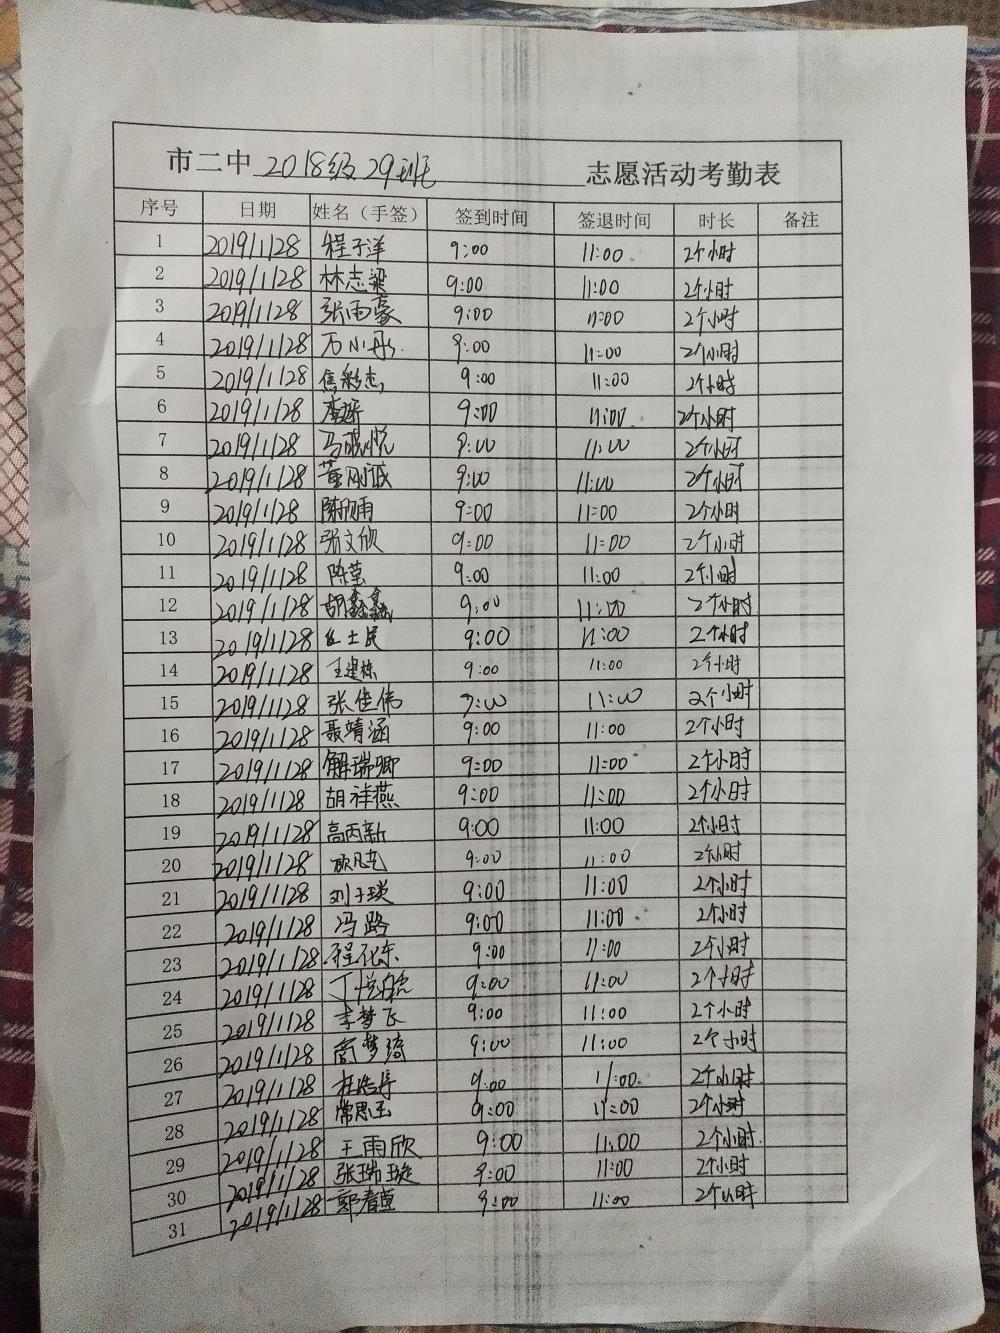 市二中 2018级29班 志愿活动考勤表
序号 日期 姓名（手签） 签到时间 签退时间 时长 备注
1 2019/1/28 程子洋 9:00 11:00 2个小时
2 2019/1/28 林志梁 9:00 11:00 2个小时
3 2019/1/28 张雨豪 9:00 11:00 2个小时
4 2019/1/28 万小彤 9:00 11:00 2个小时
5 2019/1/28 焦彩志 9:00 11:00 2个小时
6 2019/1/28 9:00 11:00 2个小时
7 2019/1/28 马晓悦 9:00 11:00 2个小时
8 2019/1/28 董刚诚 9:00 11:00 2个小时
9 2019/1/28 陈欣雨 9:00 11:00 2个小时
10 2019/1/28 张文欣 9:00 11:00 2个小时
11 2019/1/28 陈莹 9:00 11:00 2个小时
12 2019/1/28 胡鑫鑫 9:00 11:00 2个小时
13 2019/1/28 9:00 11:00 2个小时
14 2019/1/28 王建栋 9:00 11:00 2个小时
15 2019/1/28 张佳伟 9:00 11:00 2个小时
16 2019/1/28 聂靖涵 9:00 11:00 2个小时
17 2019/1/28 解瑞卿 9:00 11:00 2个小时
18 2019/1/28 胡祥燕 9:00 11:00 2个小时
19 2019/1/28 高丙新 9:00 11:00 2个小时
20 2019/1/28 9:00 11:00 2个小时
21 2019/1/28 刘子琰 9:00 11:00 2个小时
22 2019/1/28 冯路 9:00 11:00 2个小时
23 2019/1/28 程化东 9:00 11:00 2个小时
24 2019/1/28 9:00 11:00 2个小时
25 2019/1/28 李梦飞 9:00 11:00 2个小时
26 2019/1/28 商梦琦 9:00 11:00 2个小时
27 2019/1/28 杜浩停 9:00 11:00 2个小时
28 2019/1/28 常思玉 9:00 11:00 2个小时
29 2019/1/28 王雨欣 9:00 11:00 2个小时
30 2019/1/28 张瑞璇 9:00 11:00 2个小时
31 2019/1/28 郭春草 9:00 11:00 2个小时